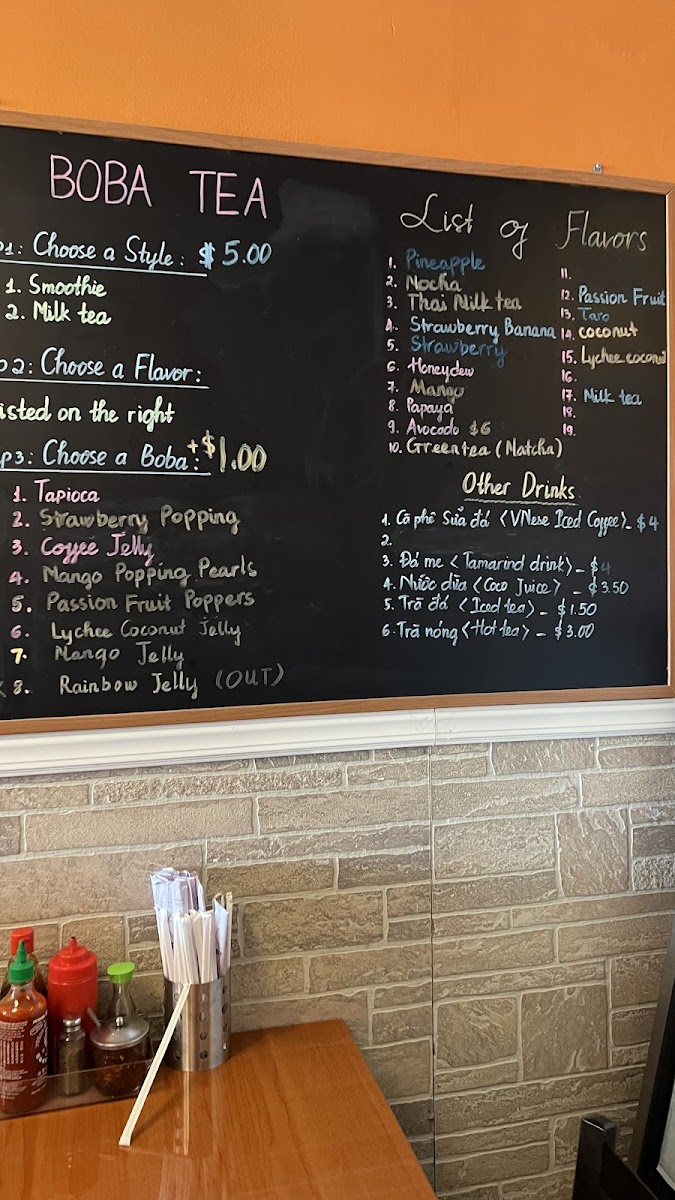 BOBA TEA
p1: Choose a Style: $ 5.00
1. Smoothie
2. Milk tea
p2: Choose a Flavor:
isted on the right
ep3: Choose a Boba: +$1.00
1. Tapioca
2. Strawberry Popping
3. Coffee Jelly
4. Mango Popping Pearls
5. Passion Fruit Poppers
6. Lychee Coconut Jelly
7. Mango Jelly
8. Rainbow Jelly (OUT)
List of Flavors
1. Pineapple
2. Mocha
3. Thai Milk tea
4. Strawberry Banana
5. Strawberry
6. Honeydew
7. Mango
8. Papaya
9. Avocado $6
10. Green tea (Matcha)
11.
12. Passion Fruit
13. Taro
14. coconut
15. Lychee coconut
16.
17. Milk tea
18.
19.
Other Drinks
1. Cà phê Sữa đá <VNese Iced Coffee> - $4
2.
3. Đá me <Tamarind drink> - $4
4. Nước dừa <Coco Juice> - $3.50
5. Trà đá <Iced tea> - $1.50
6. Trà nóng <Hot tea> - $3.00